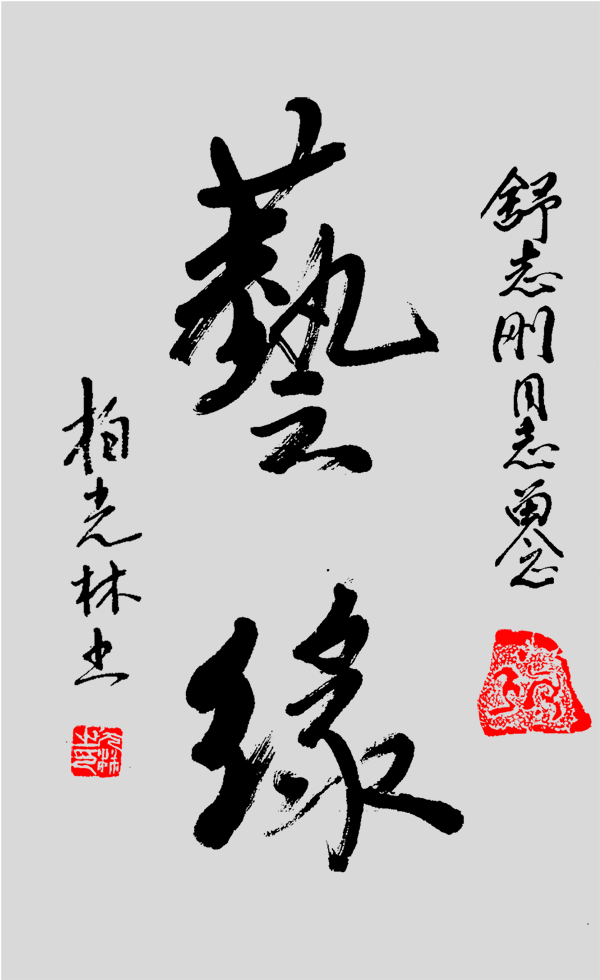 舒志刚同志留念
藝緣
柏光林书